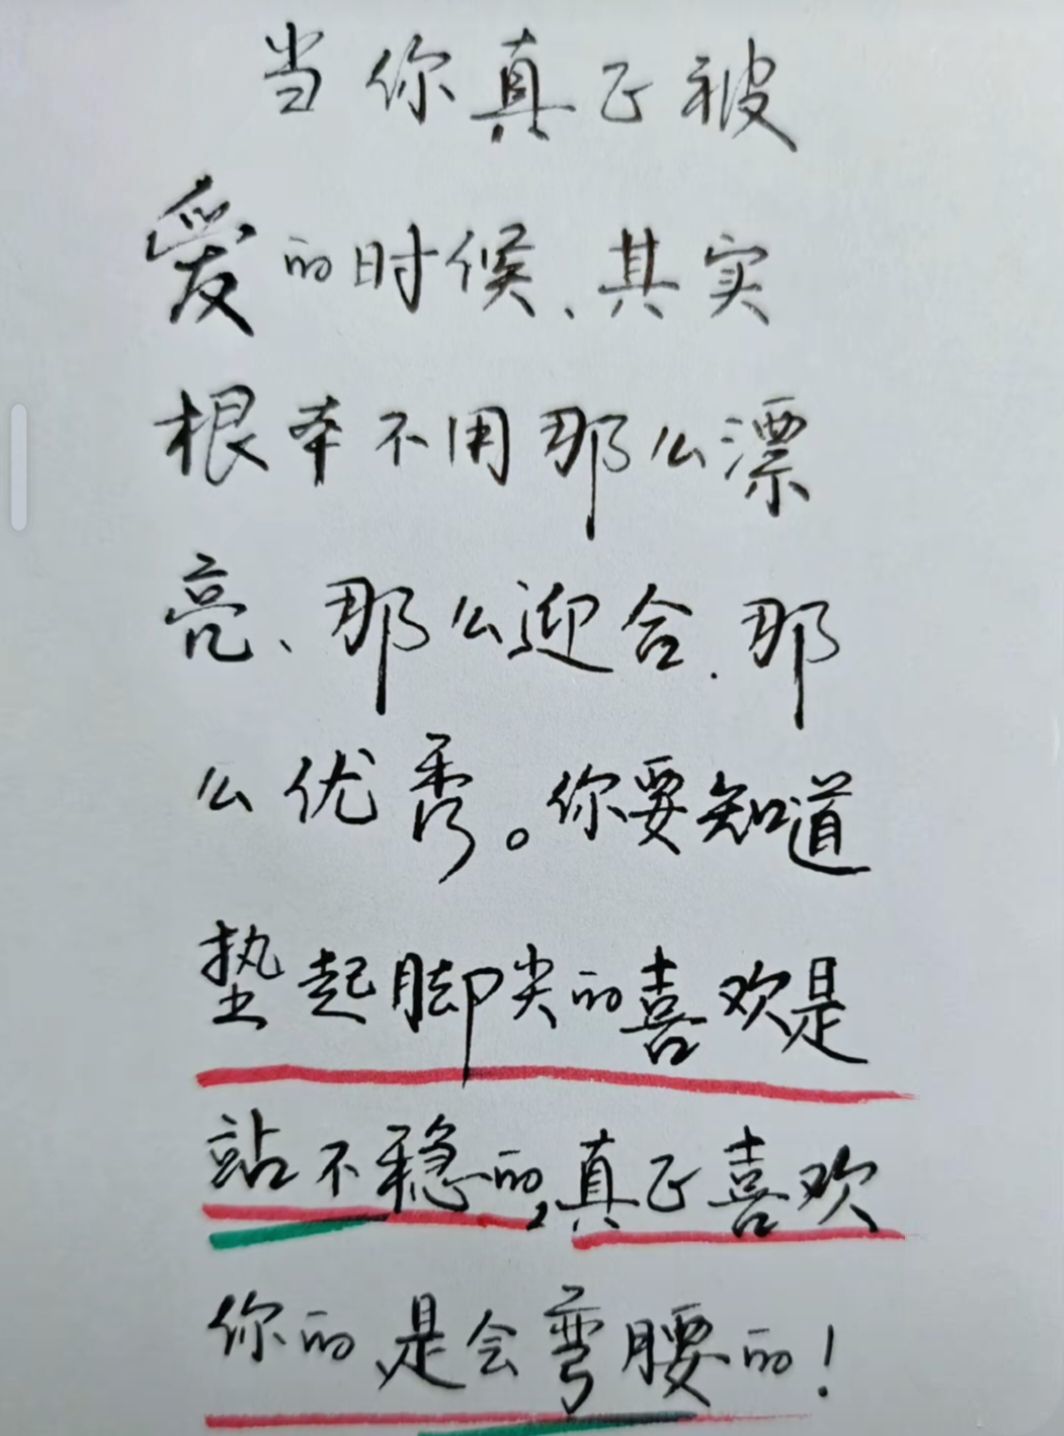 当你真正被
爱的时候、其实
根本不用那么漂
亮、那么迎合、那
么优秀。你要知道
垫起脚尖的喜欢是
站不稳的,真正喜欢
你的、是会弯腰的!